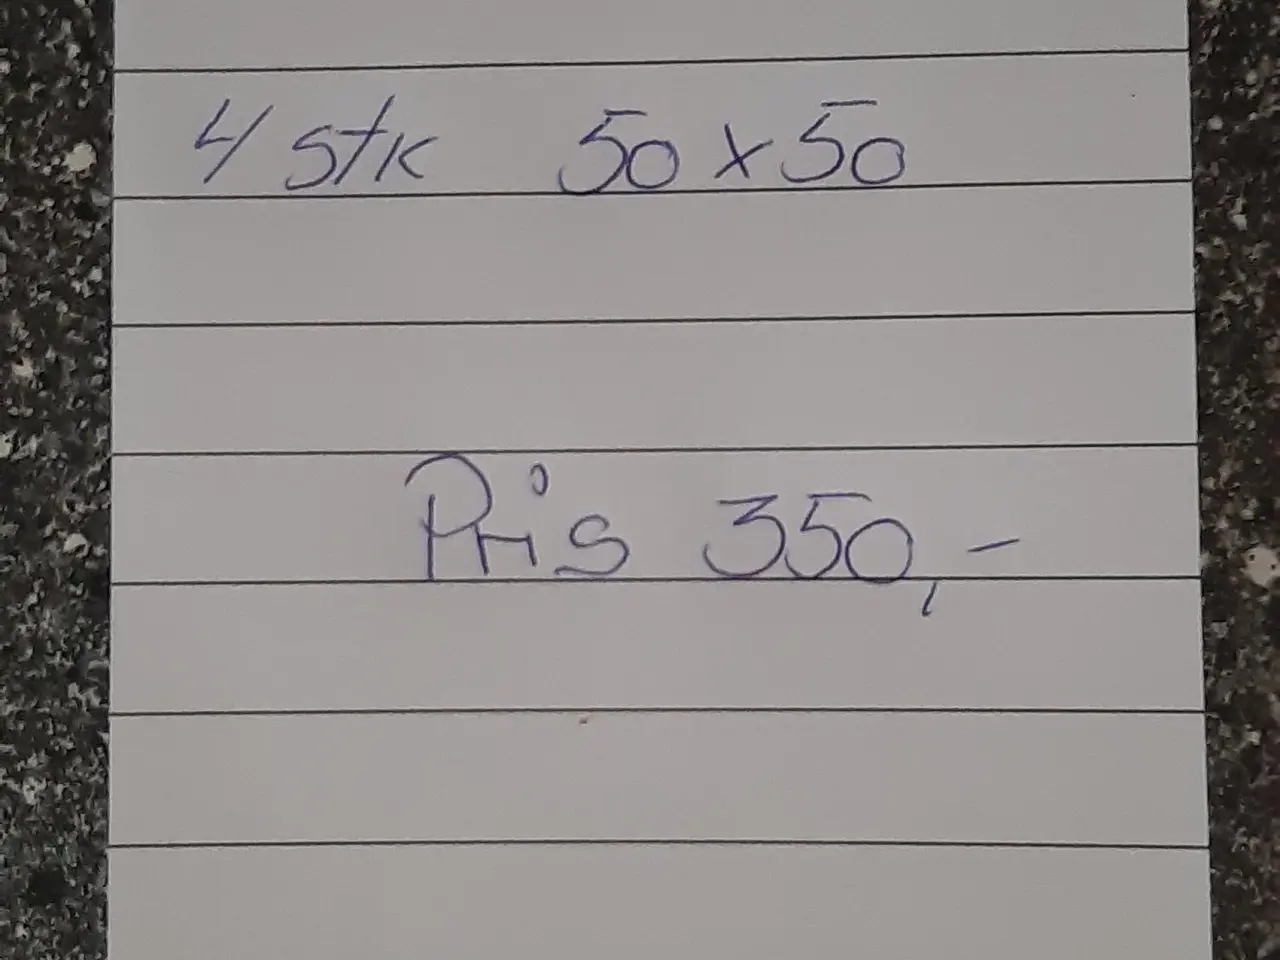 4 stk 50x50
Pris 350,-